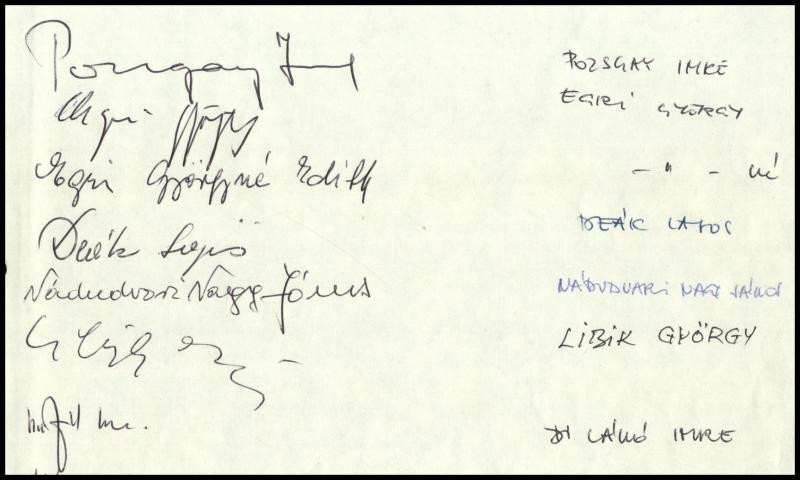 Pozsgay Imre POZSGAY IMRE
Egri György EGRI GYÖRGY
Egri Györgyné Edith - " - né
Deák Lajos DEÁK LAJOS
Nádudvari Nagy János NÁDUDVARI NAGY JÁNOS
LIBIK GYÖRGY
IMRE